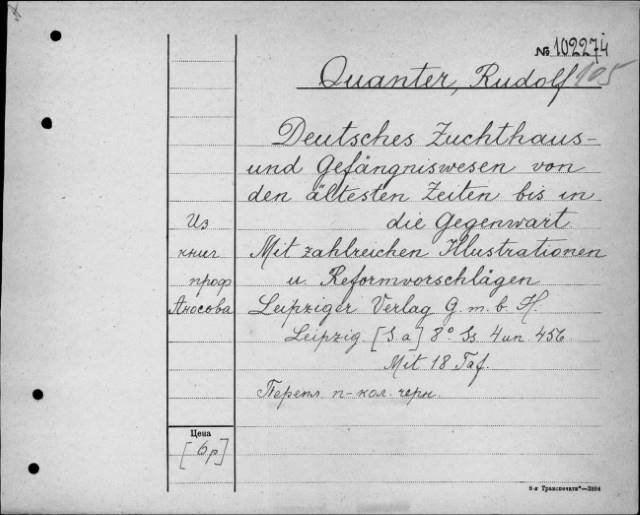 № 102274
Quanter, Rudolf 105
Deutsches Zuchthaus-
und Gefängniswesen von
den ältesten Zeiten bis in
die Gegenwart
Mit zahlreichen Illustrationen
u. Reformvorschlägen
Leipziger Verlag G. m. b. H.
Leipzig [S. a] 8° Ss. 4 un. 456
Mit 18 Taf.
Перепл. п-кол. черн.
Из
книг
проф
Аносова
Цена
[6 р]
5-я Транспечати"—3894